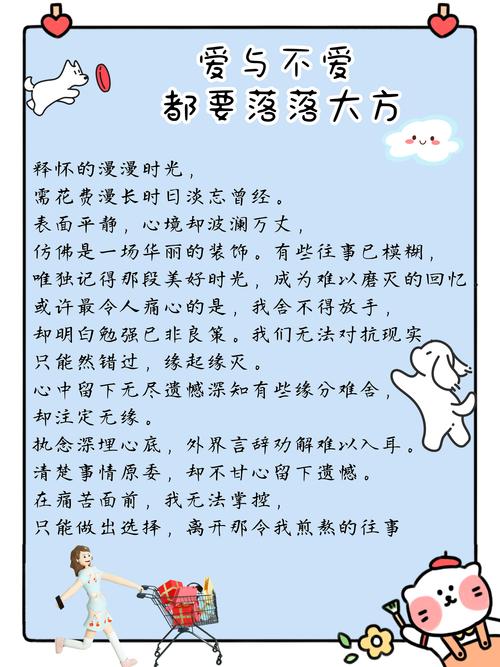 爱与不爱
都要落落大方
释怀的漫漫时光，
需花费漫长时日淡忘曾经。
表面平静，心境却波澜万丈，
仿佛是一场华丽的装饰。有些往事已模糊，
唯独记得那段美好时光，成为难以磨灭的回忆。
或许最令人痛心的是，我舍不得放手，
却明白勉强已非良策。我们无法对抗现实
只能然错过，缘起缘灭。
心中留下无尽遗憾深知有些缘分难舍，
却注定无缘。
执念深埋心底，外界言辞劝解难以入耳。
清楚事情原委，却不甘心留下遗憾。
在痛苦面前，我无法掌控，
只能做出选择，离开那令我煎熬的往事